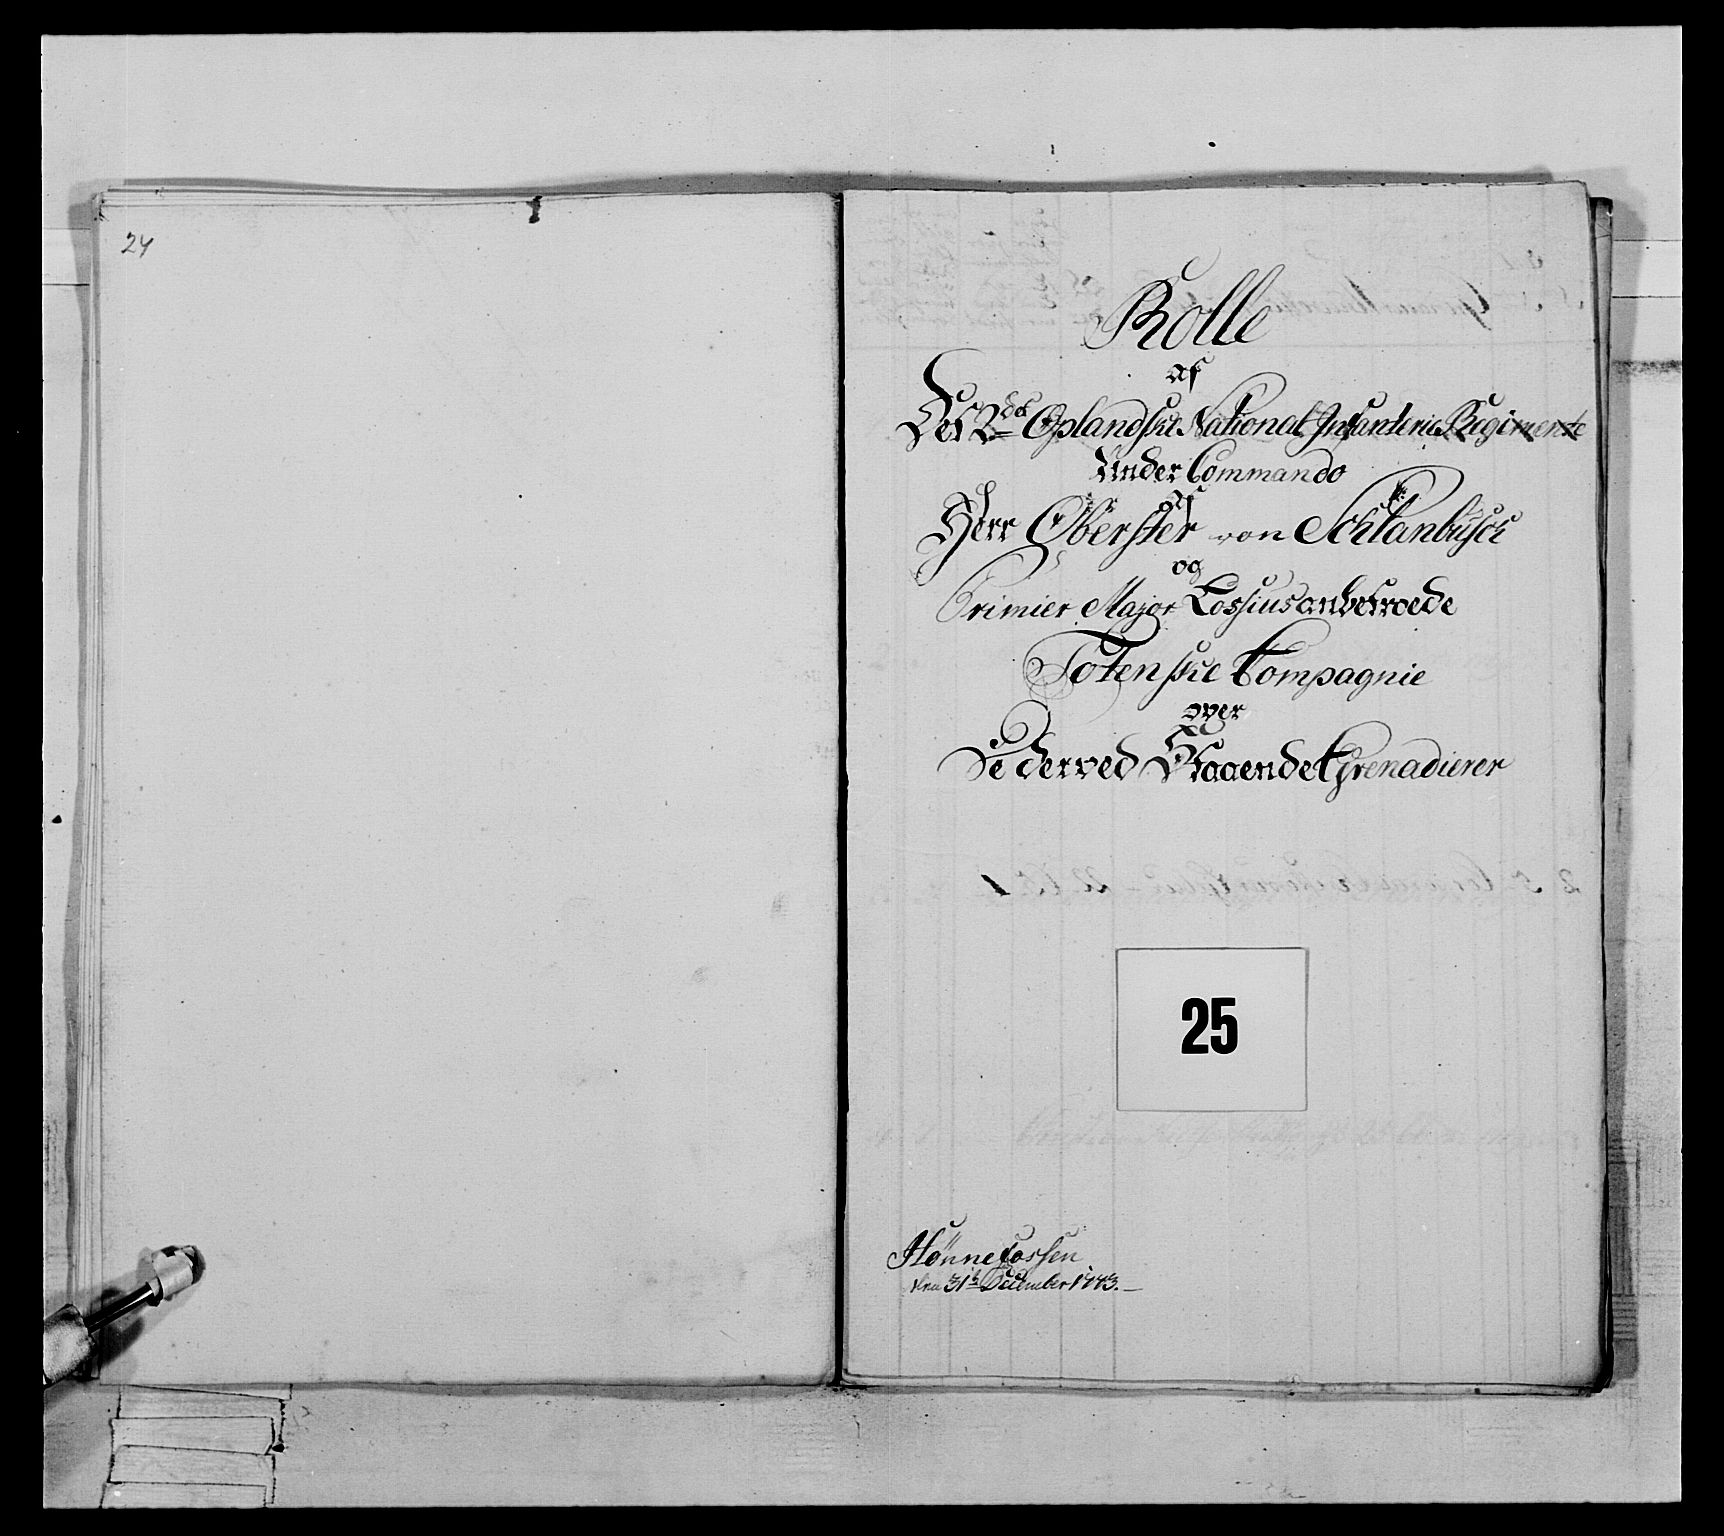 24
Rolle
af
Det 2det Oplandske National Infanterie Regimente
Under Commando
af
Herr Oberster von Schlanbusch
og
Primier Major Lossius anbetroede
Totenske Compagnie
over
De derved Staaende Grenadierer
25
Hönnefossen
den 31te December 1773.